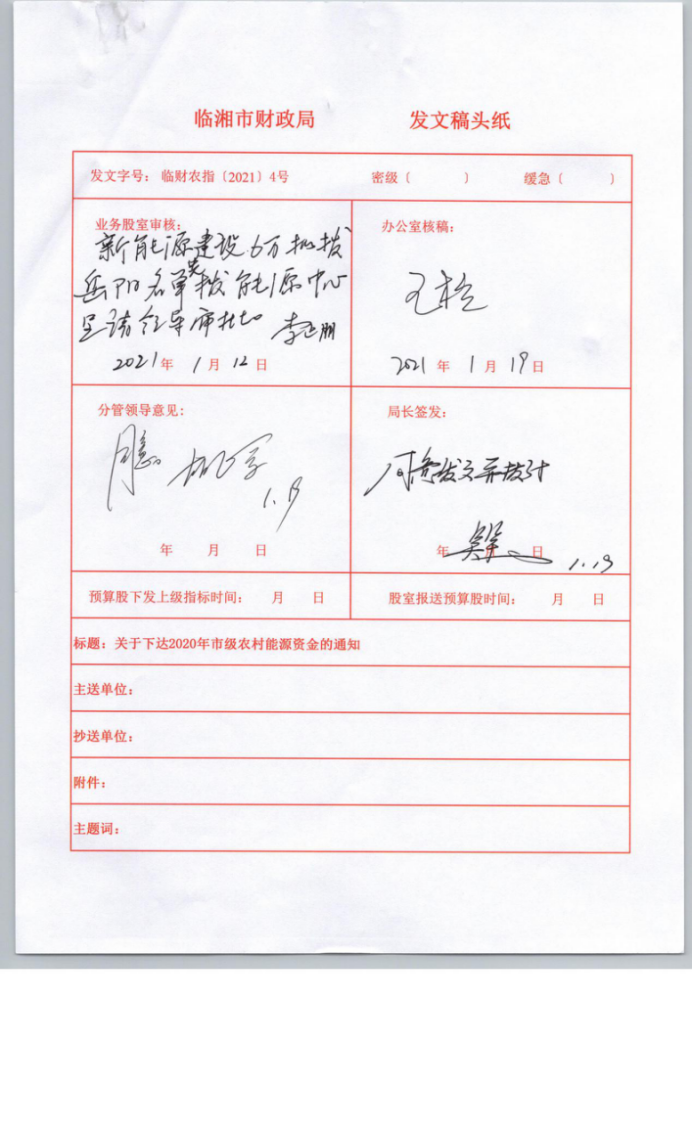 临湘市财政局 发文稿头纸
发文字号：临财农指〔2021〕4号 密级（ ） 缓急（ ）
业务股室审核：
新能源建设6万
岳阳名单 拨能源中心
呈请领导审批
2021年1月12日
办公室核稿：
2021年1月19日
分管领导意见：
1.19
年 月 日
局长签发：
同意发文并拨付
年 日 1.19
预算股下发上级指标时间： 月 日
股室报送预算股时间： 月 日
标题：关于下达2020年市级农村能源资金的通知
主送单位：
抄送单位：
附件：
主题词：